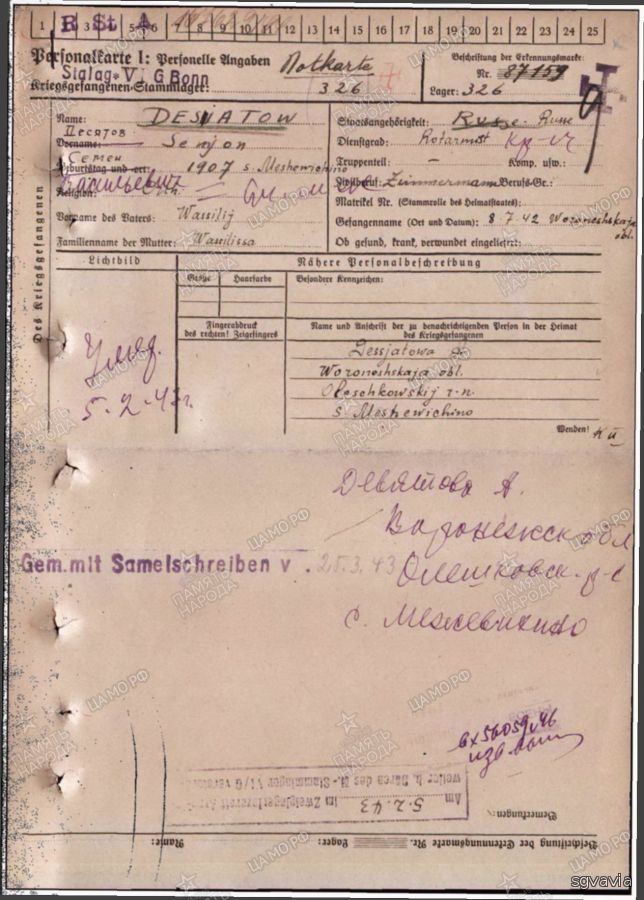 1 R St. A 7 8 9 10 11 12 13 14 15 16 17 18 19 20 21 22 23 24 25
Personalkarte I: Personelle Angaben Notkarte
Stalag VI G Bonn
Kriegsgefangenen-Stammlager: 326
Beschriftung der Erkennungsmarke:
Nr. 87159
Lager: 326
Des Kriegsgefangenen
Name: DESJATOW
Десятов
Vorname: Semjon
Семен
Geburtstag und -ort: 1907 s. Meshewichino
Васильевич
Religion:
Vorname des Vaters: Wassilij
Familienname der Mutter: Wassilissa
Staatsangehörigkeit: Russe Russe
Dienstgrad: Rotarmist кр-ц
Truppenteil: – Komp. usw.:
Zivilberuf: Zimmermann Berufs-Gr.:
Matrikel Nr. (Stammrolle des Heimatstaates):
Gefangennahme (Ort und Datum): 8.7.42 Woroneshskaja obl.
Ob gesund, krank, verwundet eingeliefert:
Lichtbild
Nähere Personalbeschreibung
Größe Haarfarbe Besondere Kennzeichen:
Fingerabdruck
des rechten! Zeigefingers
Name und Anschrift der zu benachrichtigenden Person in der Heimat
des Kriegsgefangenen
Dessjatowa A.
Woroneshskaja obl.
Oleschkowskij r-n.
s. Meshewichino
Wenden!
умер.
5-2-43г.
Десятова А.
Воронежск обл
Gem. mit Samelschreiben v. 25.3.43
Олешковск. р-
с. Межевихино
вх 56059 46
Am 5.2.43 im Zweiglazarett
weiler b. Düren des M.-Stammlager VI/G
Bemerkungen:
Name:
Beschriftung der Erkennungsmarke Nr. Lager:
ПАМЯТЬ НАРОДА
ЦАМО.РФ
sgvavia